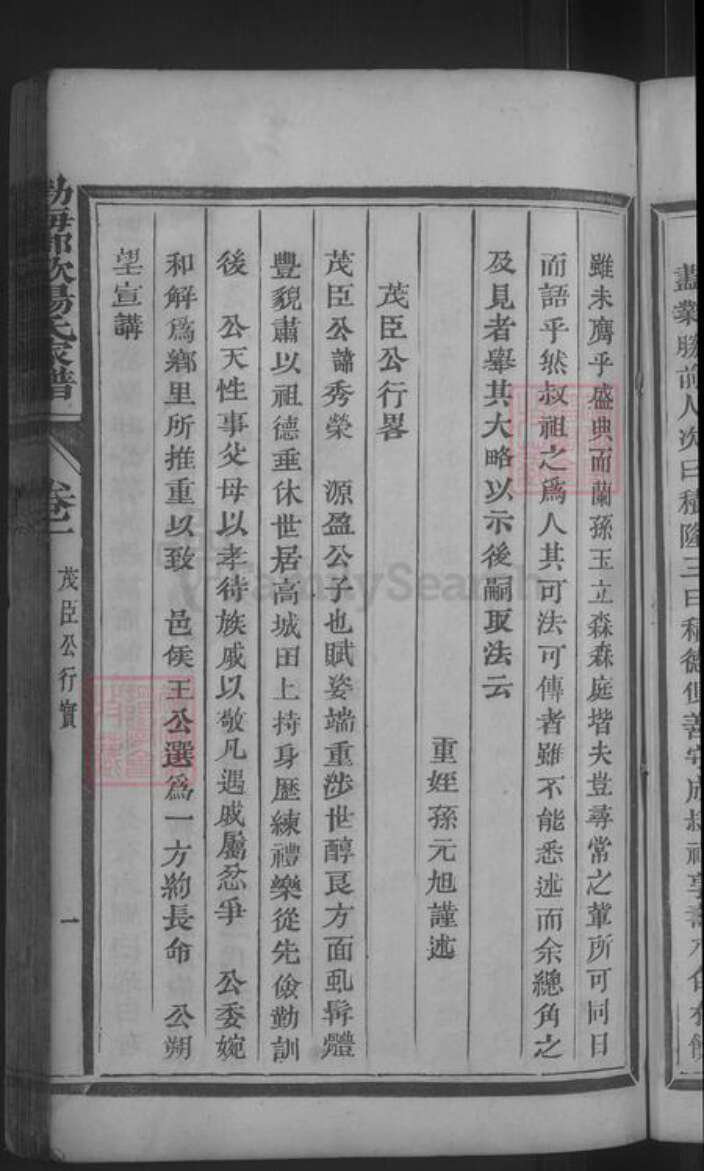 盡業勝前人次曰積隆三曰積德
雖未膺乎盛典而蘭孫玉立森森庭堦夫豈尋常之輩所可同日
而語乎然叔祖之爲人其可法可傳者雖不能悉述而余總角之
及見者舉其大略以示後嗣取法云
重姪孫元旭謹述
茂臣公行畧
茂臣公諱秀榮 源盈公子也賦姿端重涉世醇良方面虬髯體
豐貌肅以祖德垂休世居高城田上持身歷練禮樂從先儉勤訓
後 公天性事父母以孝待族戚以敬凡遇戚屬忿爭 公委婉
和解爲鄉里所推重以致 邑侯王公選爲一方約長命 公朔
望宣講
勃海郡歐陽氏家譜 卷二 茂臣公行實 一
FamilySearch